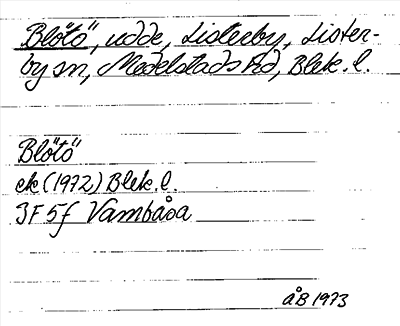 Blötö, udde, Listerby, Lister-
by sn, Medelstads hd, Blek. l.
Blötö
ek (1972) Blek. l.
3F 5f Vambåsa
åB 1973